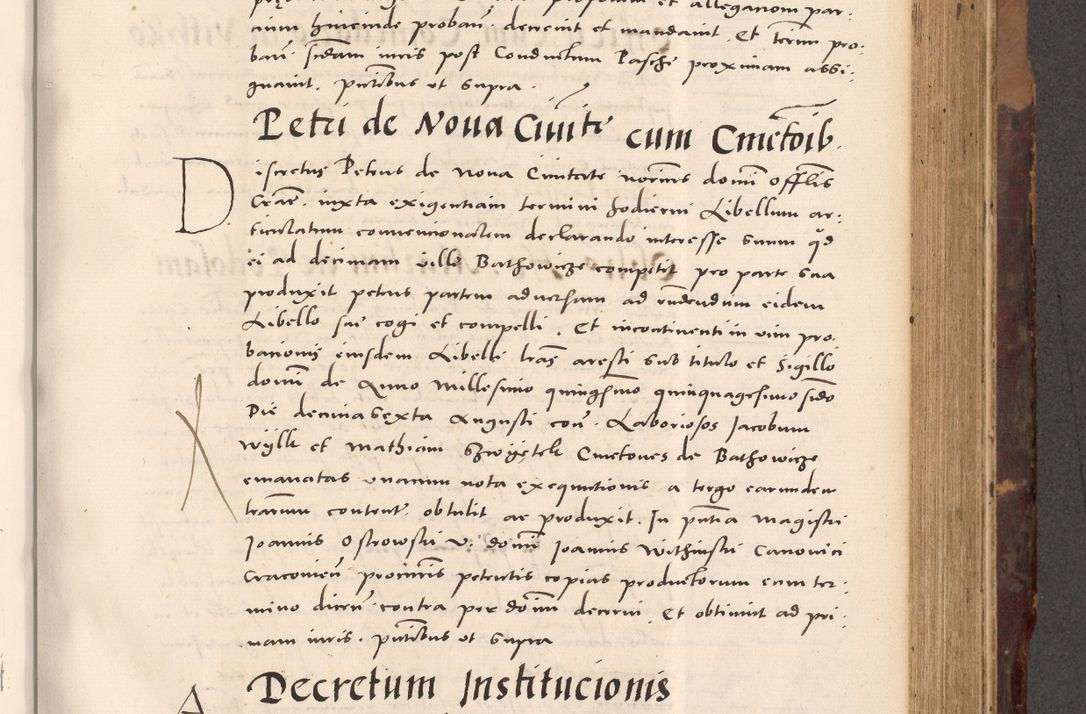 cium huiusmodi probari decrevit et mandavit. Et termin pro-
bari scdam iuris post Conductum Pasche proximam assi-
gnavit. pntibus ut supra.
Petri de Nova Civite cum Cmetoib.
Discretus Petrus de Nova Civitate noĩe domi offlis
iuxta exigentiam termini hodierni Libellum ar-
ticulatum convencionalem declarando interesse suum qd
ei ad decimam ville Bathowicze competit pro parte sua
produxit petens partem adversam ad rndendum eidem
Libello sue cogi et compelli. Et incontinenti in vim pro-
bationis eiusdem Libelli lras aresti sub titulo et Sigillo
domi de Anno Millesimo quingsimo quinquagesimo scdo
Die decima sexta Augusti con. Laboriosos Jacobum
Wylk et Mathiam Cmetones de Bathowicze
emanatas unacum nota exequutionis a tergo earundem
lrarum content obtulit ac produxit. In pntia Magistri
Joannis Ostrowski v. domi Joannis Withinski Canonici
Cracovien procuris petentis copias productorum cum ter-
mino dicen contra per domi decerni. Et obtinuit ad pri-
mam iuris. pntibus ut supra
Decretum Institucionis
A